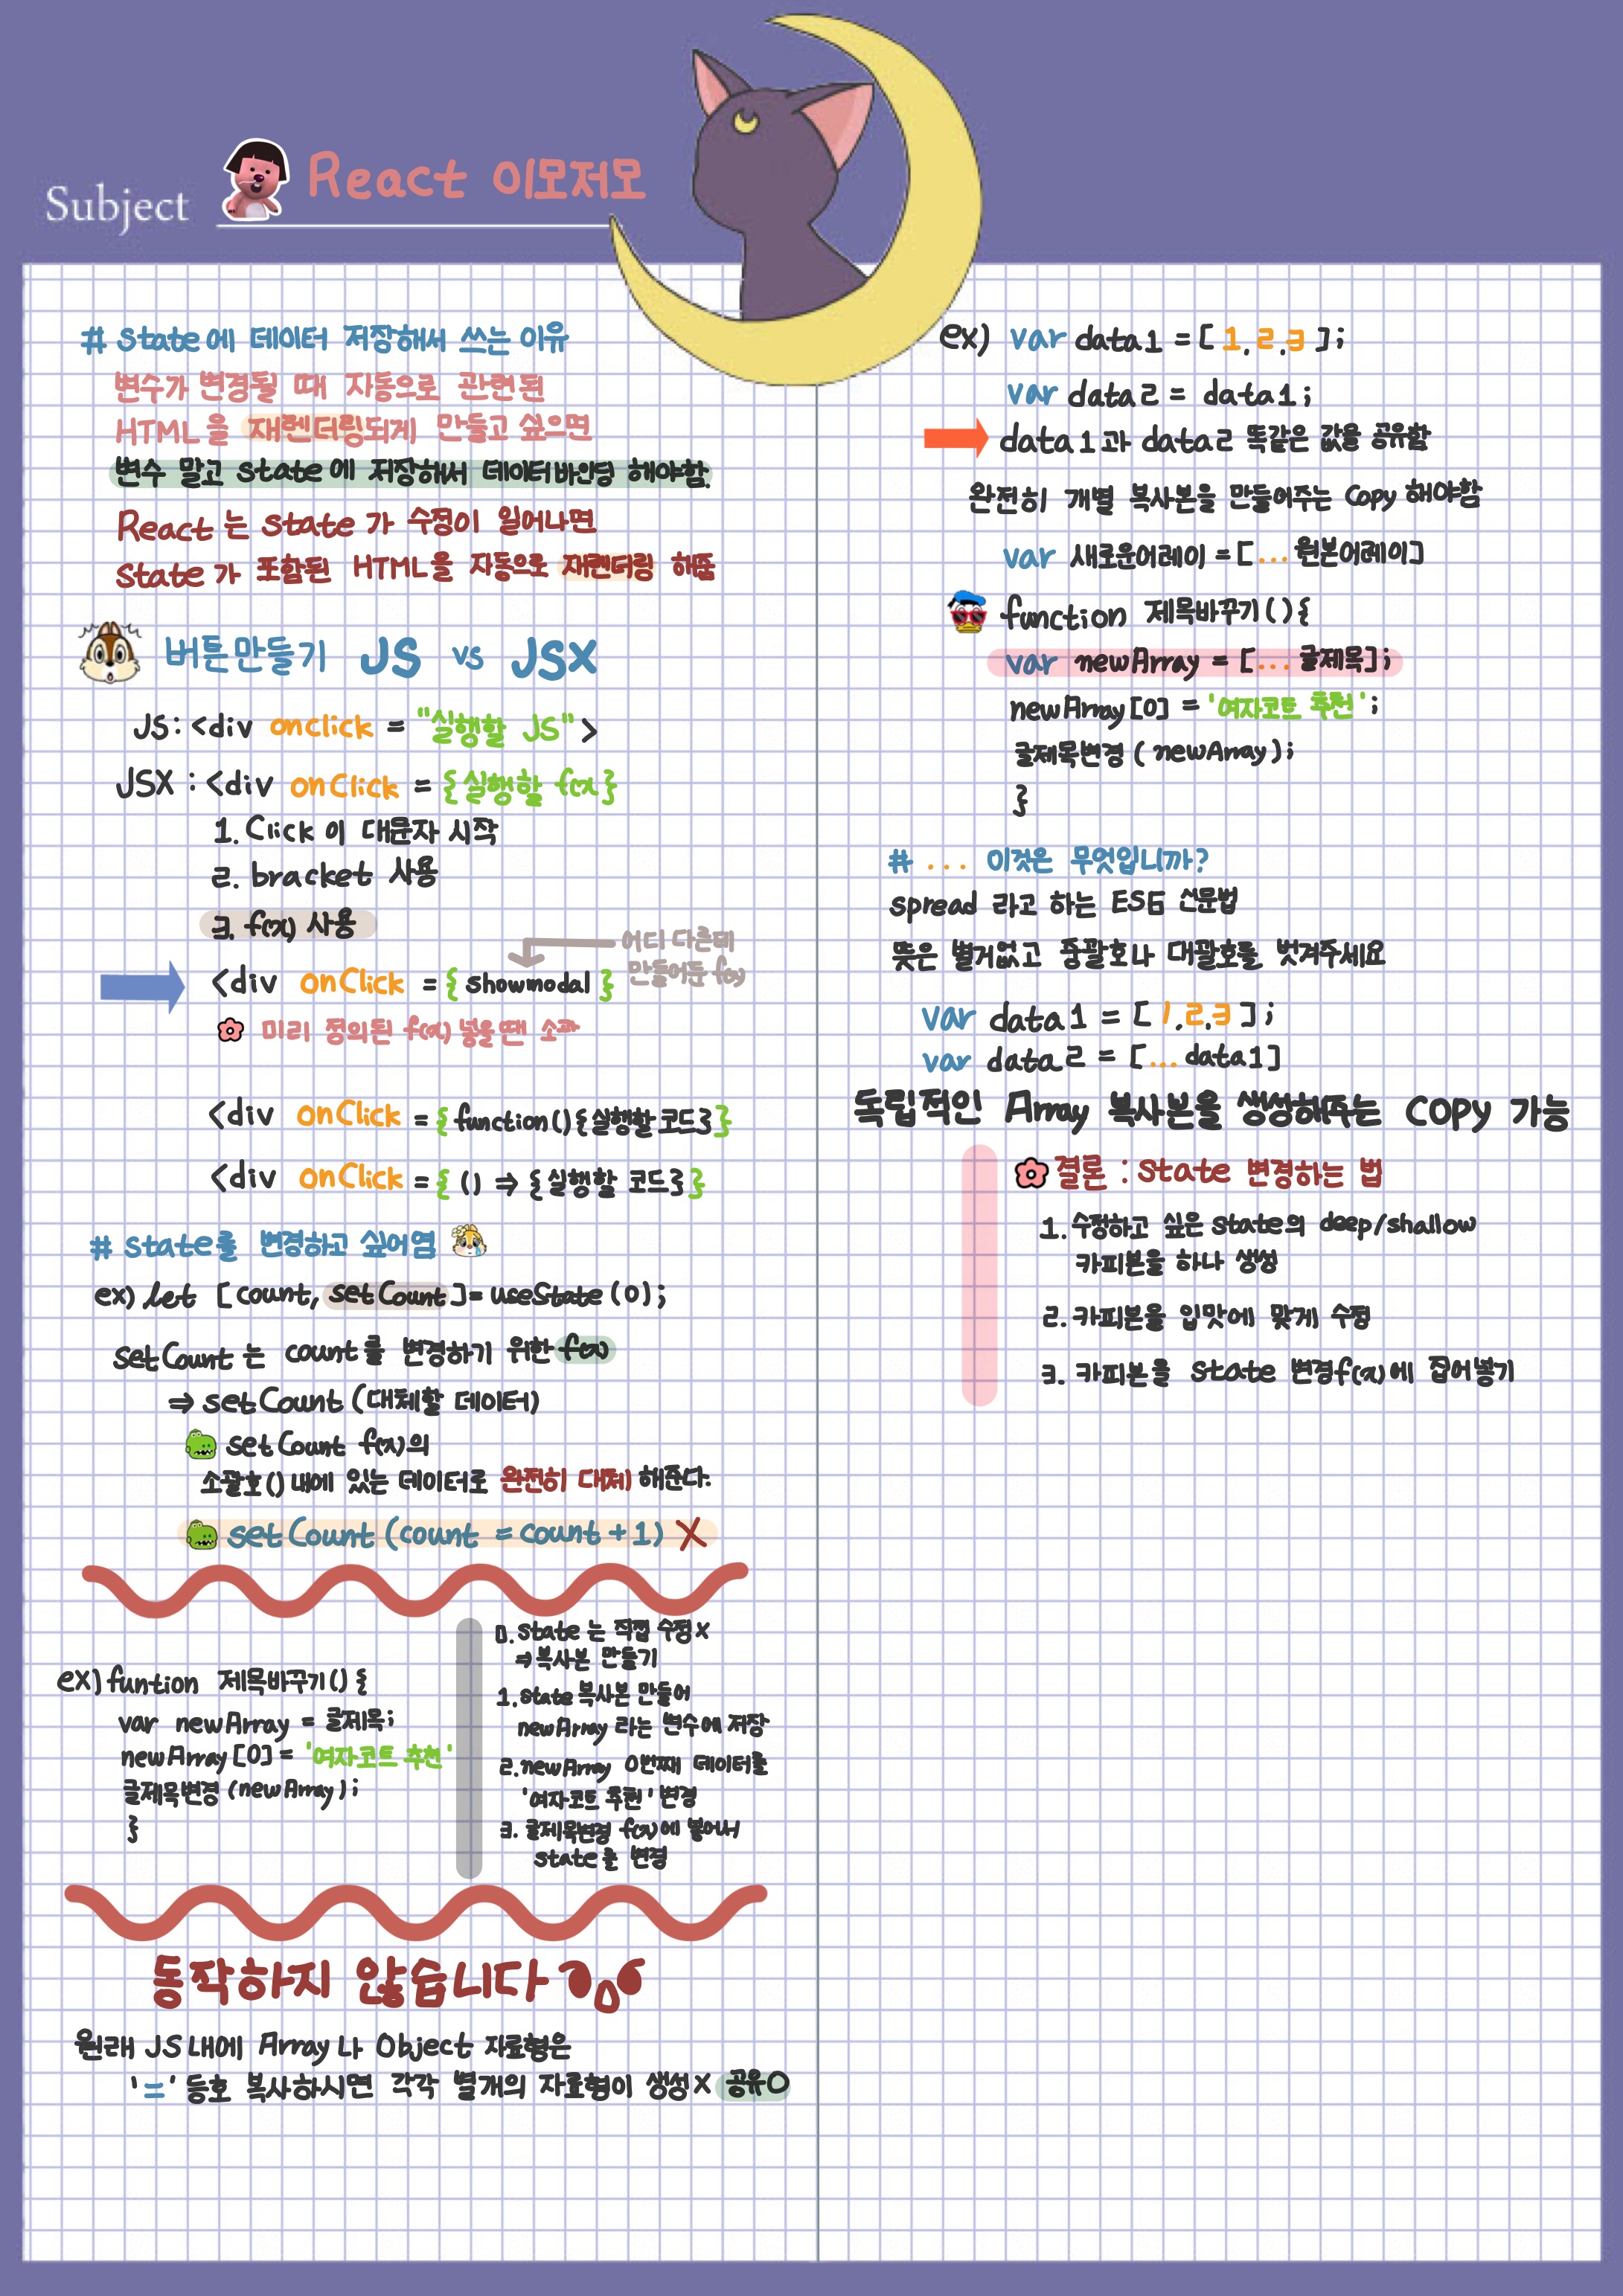 Subject
React 이모저모
# state에 데이터 저장해서 쓰는 이유
변수가 변경될 때 자동으로 관련된
HTML을 재렌더링되게 만들고 싶으면
변수 말고 state에 저장해서 데이터바인딩 해야함.
React는 state가 수정이 일어나면
state가 포함된 HTML을 자동으로 재렌더링 해줌
버튼만들기 JS vs JSX
JS : <div onclick = "실행할 JS">
JSX : <div onClick = {실행할 f(x)}
1. Click이 대문자 시작
2. bracket 사용
3. f(x) 사용
어디 다른데
만들어둔 f(x)
<div onClick = { showmodal }
미리 정의된 f(x) 넣을땐 소괄
<div onClick = {function(){실행할 코드}}
<div onClick = { () => {실행할 코드}}
# state를 변경하고 싶어염
ex) let [count, setCount] = useState(0);
setCount는 count를 변경하기 위한 f(x)
⇒ setCount(대체할 데이터)
setCount f(x)의
소괄호()내에 있는 데이터로 완전히 대체 해준다.
setCount(count = count + 1) X
ex) funtion 제목바꾸기(){
var newArray = 글제목;
newArray[0] = '여자코트 추천'
글제목변경(newArray);
}
0. state는 직접 수정 X
⇒ 복사본 만들기
1. state 복사본 만들어
newArray라는 변수에 저장
2. newArray 0번째 데이터를
'여자코트 추천' 변경
3. 글제목변경 f(x)에 넣어서
state를 변경
동작하지 않습니다
원래 JS내에 Array나 Object 자료형은
'=' 등호 복사하시면 각각 별개의 자료형이 생성X 공유O
ex) var data1 = [1,2,3];
var data2 = data1;
data1과 data2 똑같은 값을 공유함
완전히 개별 복사본을 만들어주는 Copy 해야함
var 새로운어레이 = [...원본어레이]
function 제목바꾸기(){
var newArray = [...글제목];
newArray[0] = '여자코트 추천';
글제목변경(newArray);
}
# ... 이것은 무엇입니까?
spread 라고 하는 ES6 신문법
뜻은 별거없고 중괄호나 대괄호를 벗겨주세요
var data1 = [1,2,3];
var data2 = [...data1]
독립적인 Array 복사본을 생성해주는 COPY 가능
결론 : state 변경하는 법
1. 수정하고 싶은 state의 deep/shallow
카피본을 하나 생성
2. 카피본을 입맛에 맞게 수정
3. 카피본을 state 변경f(x)에 집어넣기